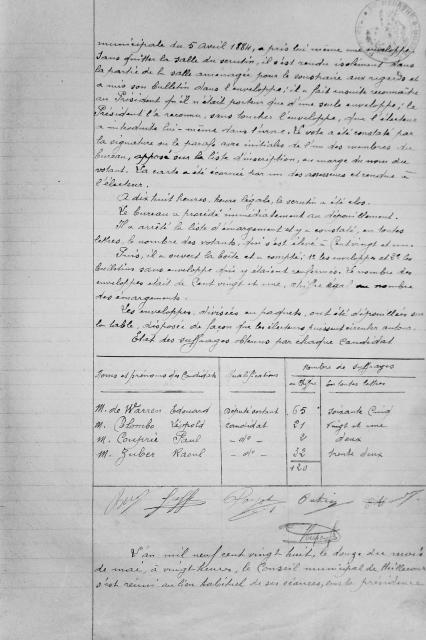 municipale du 5 Avril 1884, a pris lui même une enveloppe.
Sans quitter la salle du scrutin, il s'est rendu isolément dans
la partie de la salle aménagée pour le soustraire aux regards et
a mis son bulletin dans l'enveloppe; il a fait ensuite reconnaître
au Président qu'il n'était porteur que d'une seule enveloppe; le
Président l'a reconnu, sans toucher l'enveloppe, que l'électeur
a introduite lui-même dans l'urne. Le vote a été constaté par
la signature ou le parafe avec initiales de l'un des membres du
bureau, apposé sur la liste d'inscription, en marge du nom du
votant. La carte a été écornée par un des assesseurs et rendue à
l'électeur.
A dix huit heures, heure légale, le scrutin a été clos.
Le bureau a procédé immédiatement au dépouillement.
Il a arrêté la liste d'émargement et y a constaté, en toutes
lettres, le nombre des votants, qui s'est élevé à Cent vingt et un.
Puis, il a ouvert la boîte et a compté: 1º les enveloppes et 2º les
bulletins sans enveloppe qui y étaient renfermés. Le nombre des
enveloppes était de Cent vingt et une, chiffre égal au nombre
des émargements.
Les enveloppes, divisées en paquets, ont été dépouillées sur
la table, disposée de façon que les électeurs puissent circuler autour.
Etat des suffrages obtenus par chaque candidat
Noms et prénoms des Candidats Qualifications Nombre de suffrages
en chiffres en toutes lettres
M. de Warren Edouard député sortant 65 soixante Cinq
M. Colombo Léopold candidat 21 Vingt et une
M. Couprié Paul - dº - 2 deux
M. Zuber Raoul - dº - 32 trente deux
120
L'an mil neuf cent vingt huit, le douze du mois
de mai, à vingt heures, le Conseil municipal de
s'est réuni au lieu habituel de ses séances, sous la présidence